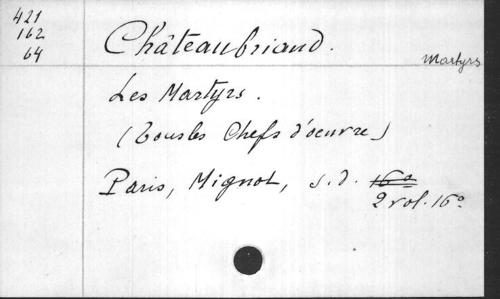 421
162
64
Châteaubriand.
Martyrs
Les Martyrs.
(Tous les Chefs d'oeuvre)
Paris, Mignot, s.d. 16°
2 vol. 16°